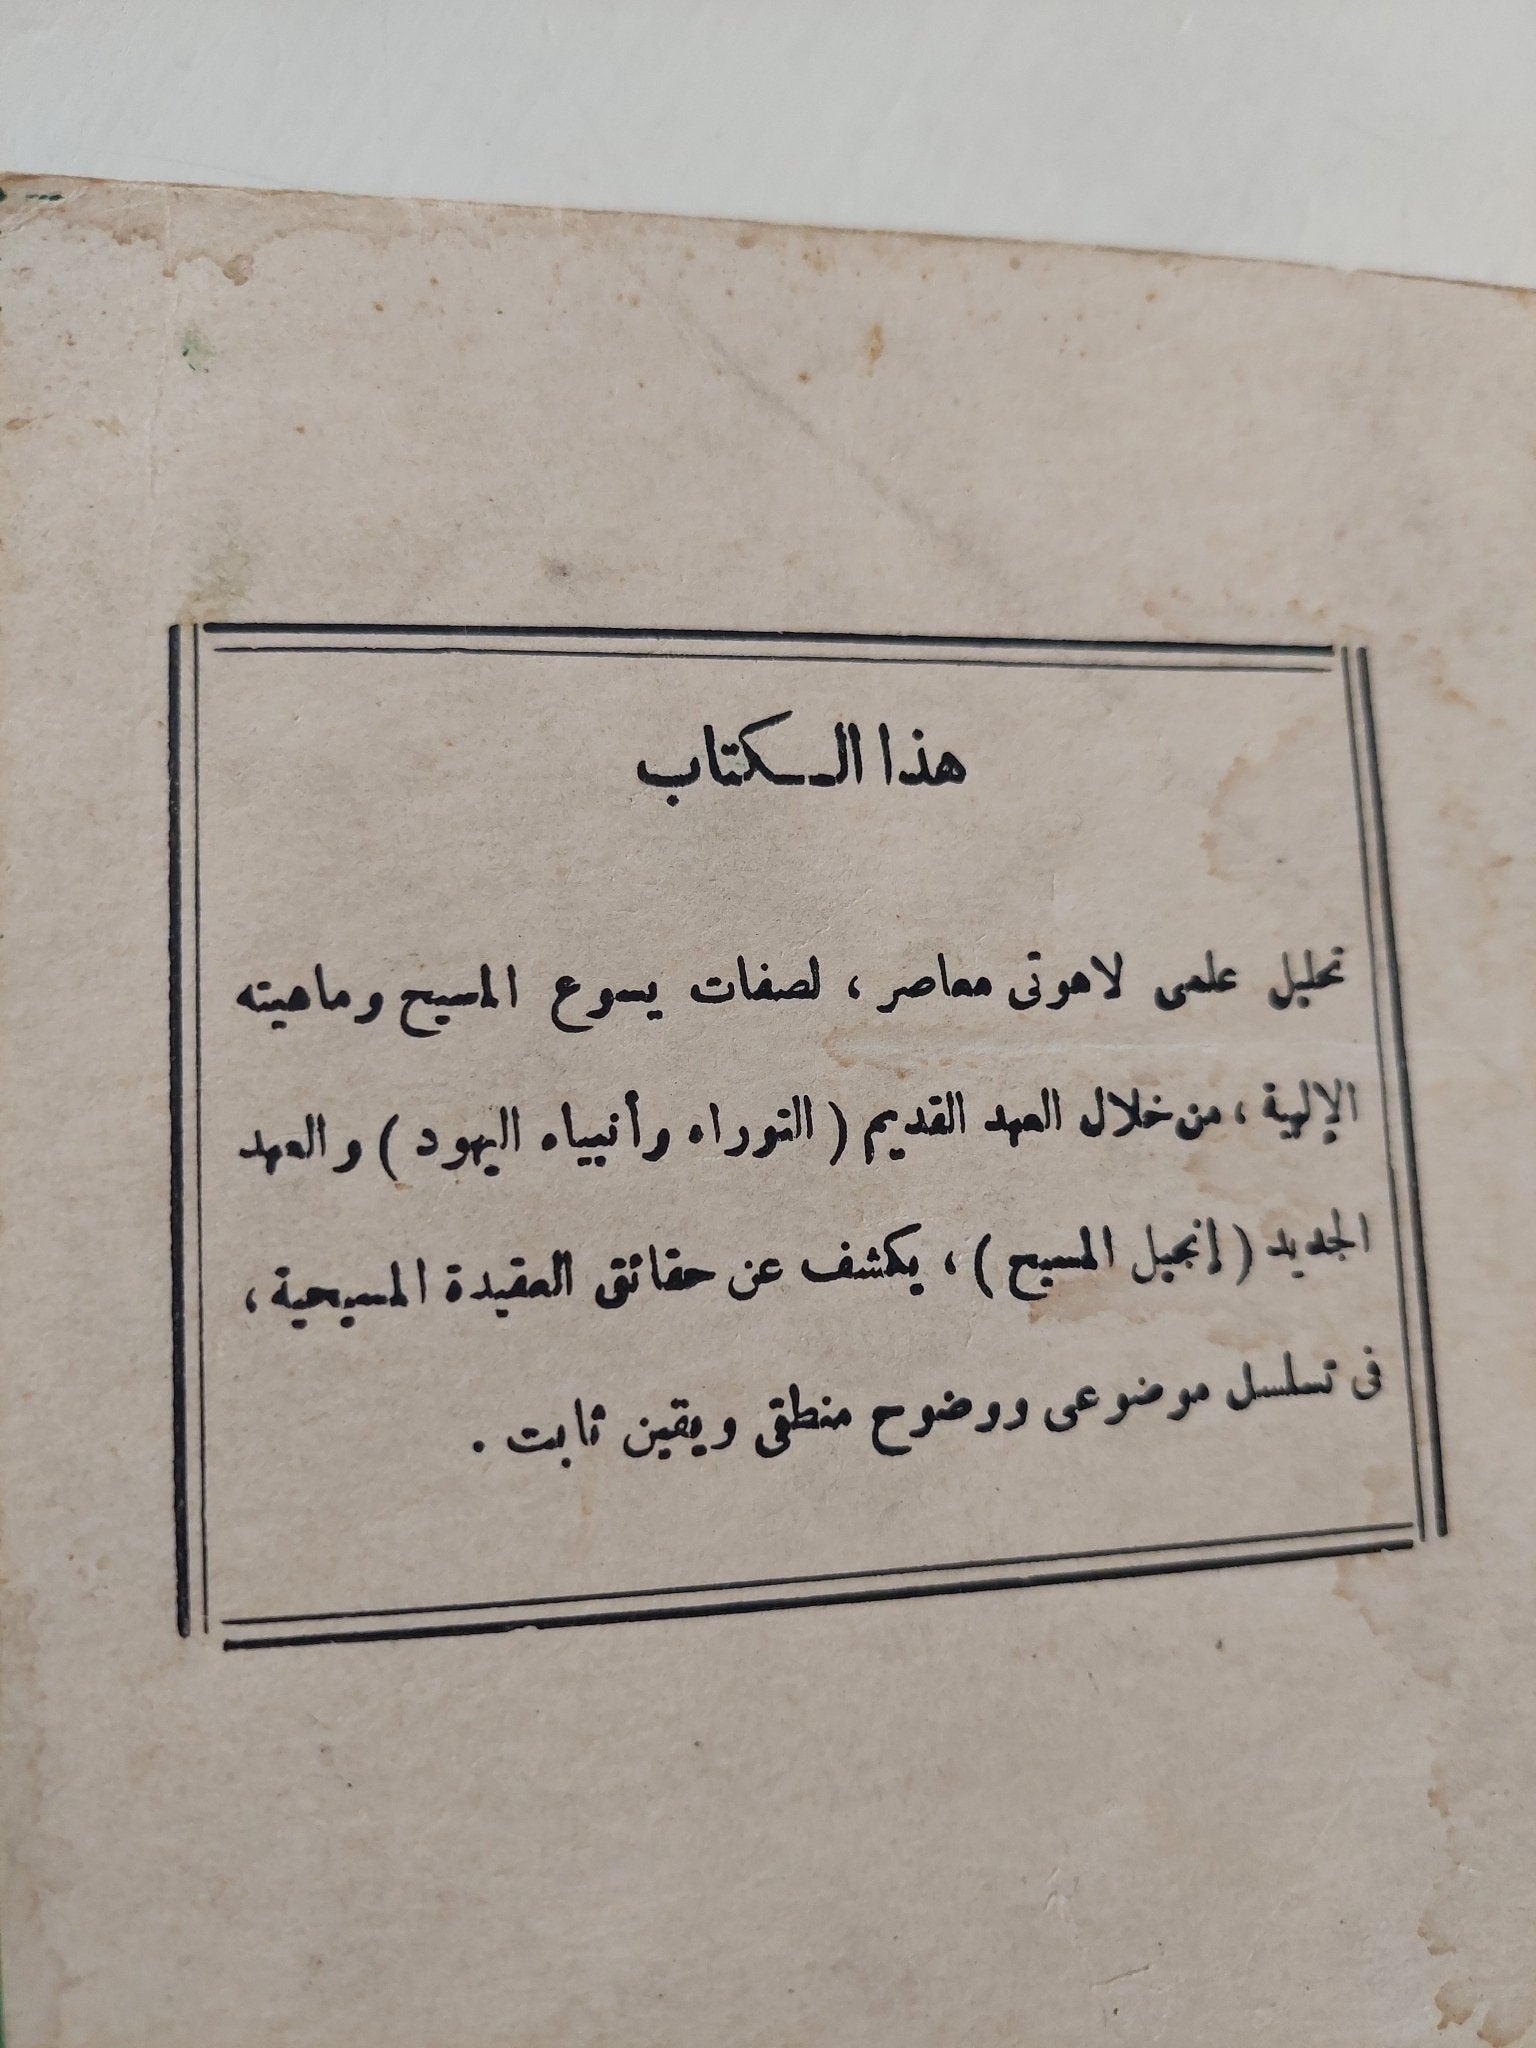 هذا الكتاب
تحليل علمى لاهوتى معاصر ، لصفات يسوع المسيح وماهيته
الإلهية ، من خلال العهد القديم ( التوراه وأنبياه اليهود ) والعهد
الجديد ( إنجيل المسيح ) ، يكشف عن حقائق العقيدة المسيحية ،
فى تسلسل موضوعى ووضوح منطقى ويقين ثابت .